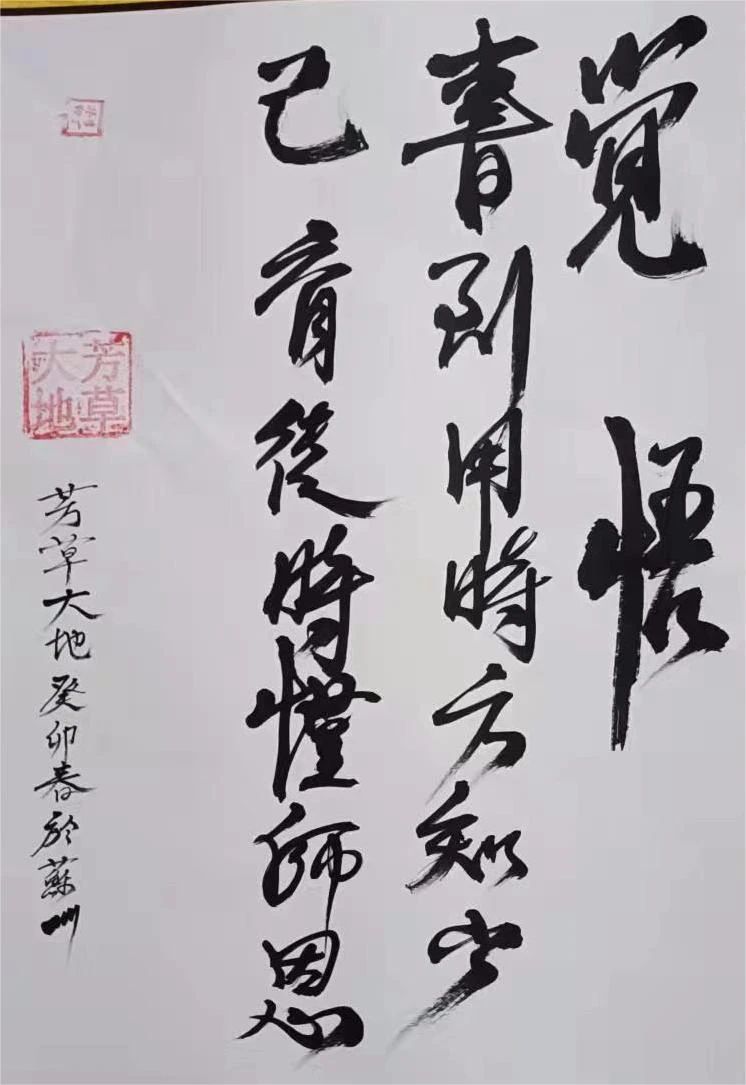 覺悟
書到用時方知少
己育徒時懂師恩
芳草大地
芳草大地癸卯春於蘇州